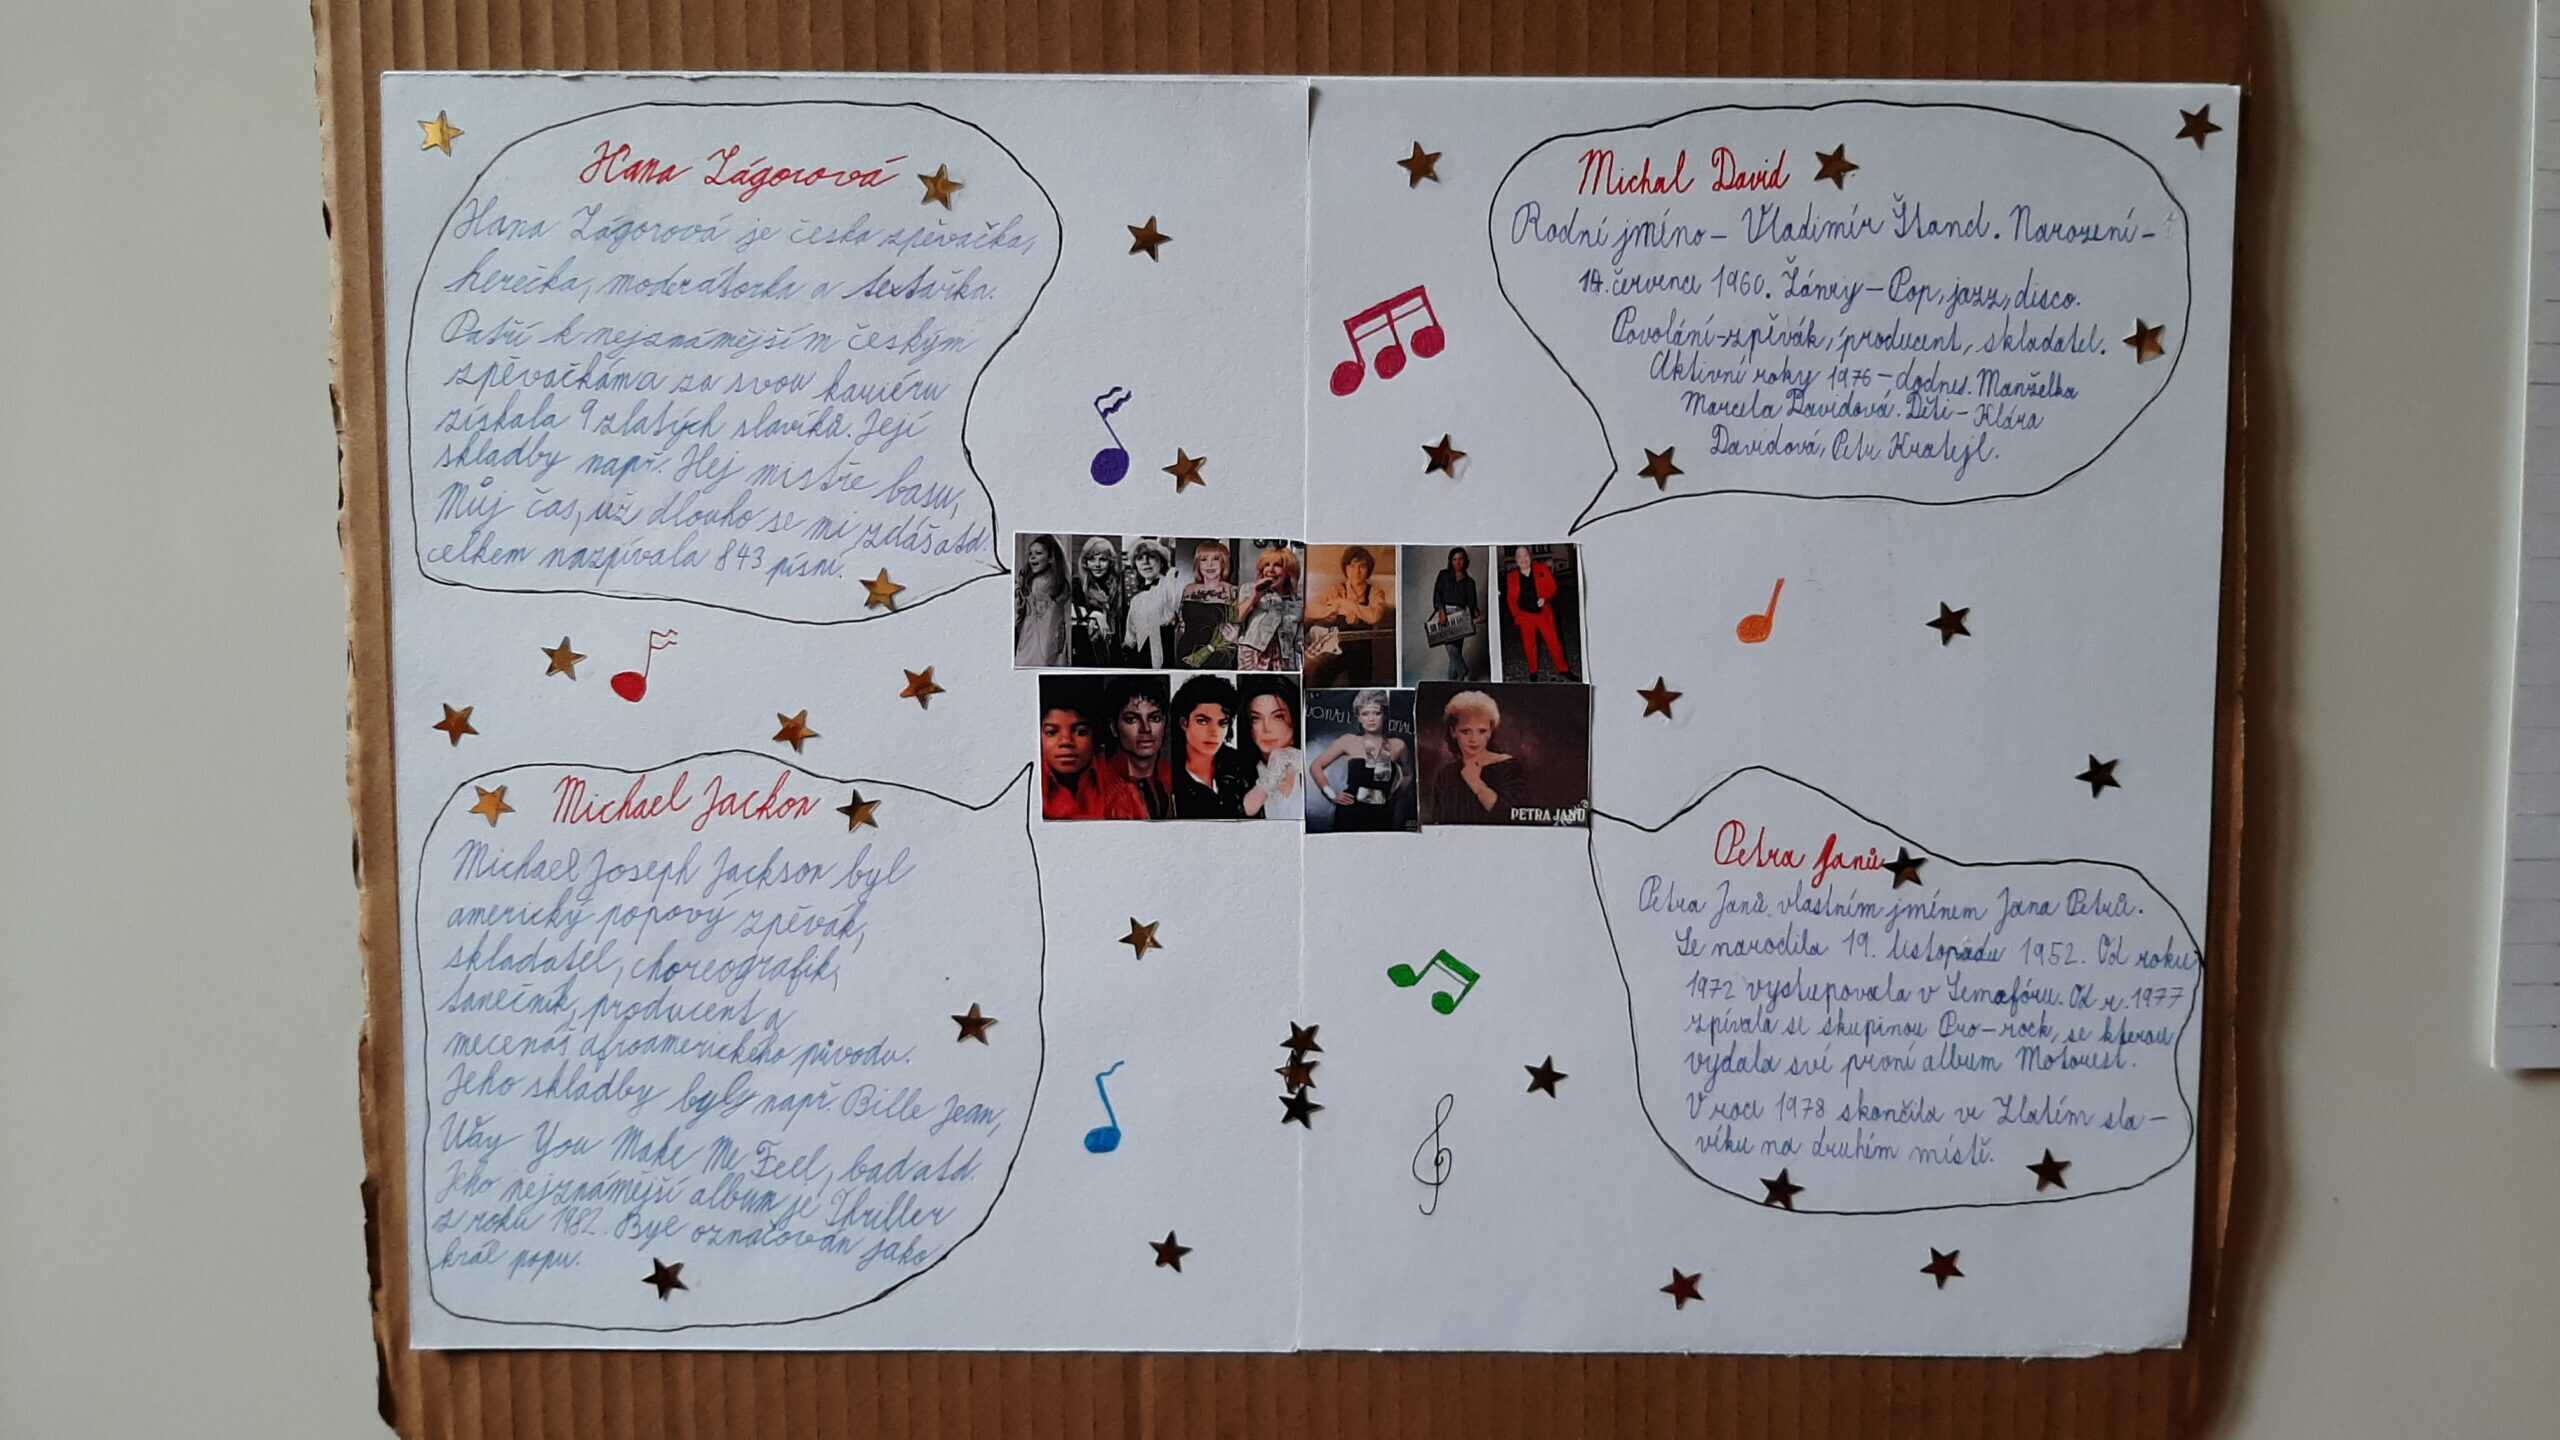 Hana Zágorová
Hana Zágorová je česka zpěvačka,
herečka, moderátorka a textařka.
Patří k nejznámějším českým
zpěvačkám a za svou kariéru
získala 9 zlatých slavíků. Její
skladby např. Hej mistře basu,
Můj čas, už dlouho se mi zdáš atd.
celkem nazpívala 843 písní.
Michael Jackon
Michael Joseph Jackson byl
americký popový zpěvák,
skladatel, choreografik,
tanečník, producent a
mecenáš afroamerického původu.
Jeho skladby byly např. Bille Jean,
Way You Make Me Feel, bad atd.
Jeho nejznámější album je Thriller
z roku 1982. Byl označován jako
král popu.
Michal David
Rodní jméno – Vladimír Štancl. Narození –
14. července 1960. Žánry – Pop, jazz, disco.
Povolání – zpěvák, producent, skladatel.
Aktivní roky 1976 – dodnes. Manželka
Marcela Davidová. Děti – Klára
Davidová, Petr Kratejl.
PETRA JANŮ
Petra Janů
Petra Janů vlastním jménem Jana Petrů.
Se narodila 19. listopadu 1952. Od roku
1972 vystupovala v Semafóru. Od r. 1977
zpívala se skupinou Pro-rock, se kterou
vydala své první album Motorest.
V roce 1978 skončila ve Zlatém sla-
víku na druhém místě.